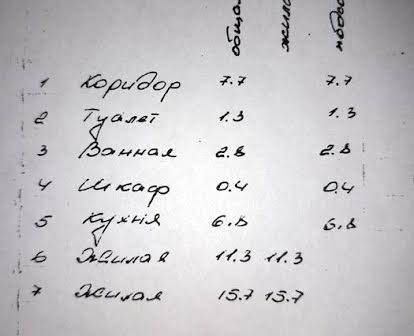 общая жилая подсоб
1 Коридор 7.7 7.7
2 Туалет 1.3 1.3
3 Ванная 2.8 2.8
4 Шкаф 0.4 0.4
5 Кухня 6.8 6.8
6 Жилая 11.3 11.3
7 Жилая 15.7 15.7